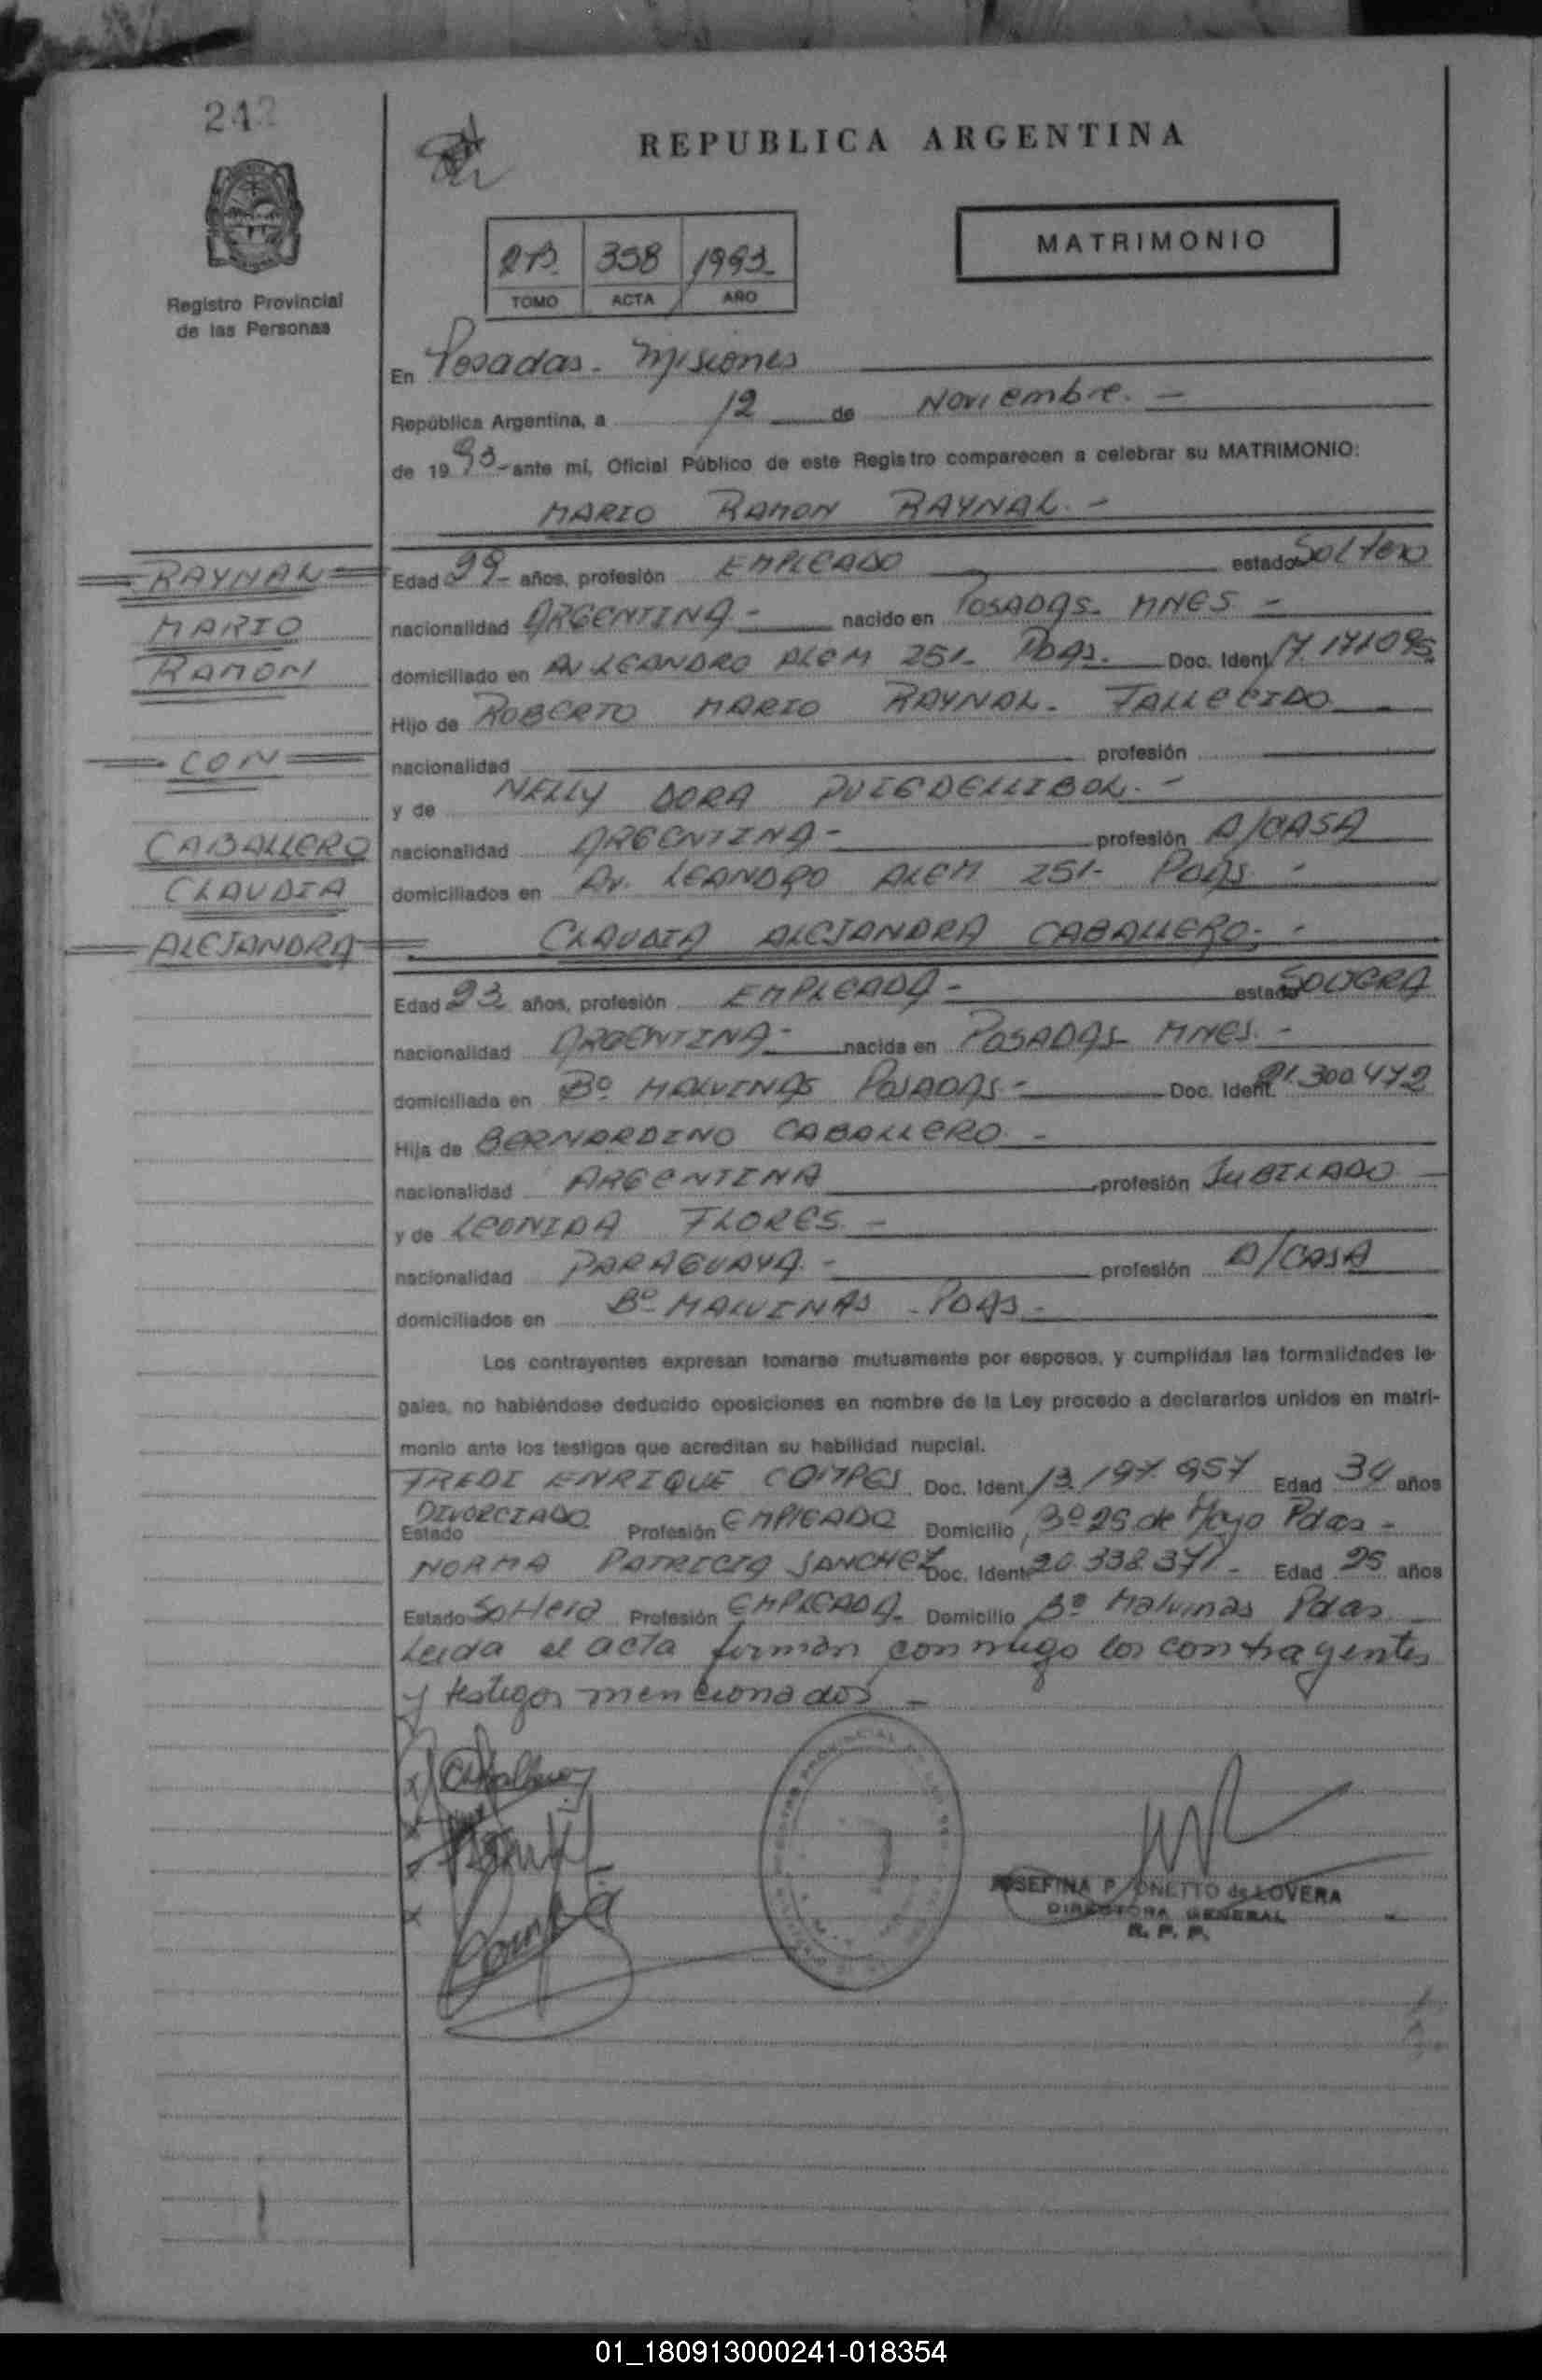 242
REPUBLICA ARGENTINA
2B 358 1993
TOMO ACTA AÑO
MATRIMONIO
Registro Provincial
de las Personas
En Posadas - Misiones
República Argentina, a 12 de Noviembre. -
de 19 93- ante mí, Oficial Público de este Registro comparecen a celebrar su MATRIMONIO:
MARIO RAMON RAYNAL. -
RAYNAL
Edad 29- años, profesión EMPLEADO estado Soltero
MARIO
nacionalidad ARGENTINA - nacido en POSADAS. MNES -
RAMON
domiciliado en AV LEANDRO ALEM 251- PDAS. Doc. Ident. 17.171095
Hijo de ROBERTO MARIO RAYNAL. FALLECIDO
CON
nacionalidad profesión
y de NELLY DORA PUIGDELLIBOL. -
CABALLERO
nacionalidad ARGENTINA - profesión A/CASA
CLAUDIA
domiciliados en AV. LEANDRO ALEM 251- PDAS -
ALEJANDRA
CLAUDIA ALEJANDRA CABALLERO. -
Edad 23 años, profesión EMPLEADA - estado SOLTERA
nacionalidad ARGENTINA - nacida en POSADAS- MNES. -
domiciliada en Bº MALVINAS POSADAS - Doc. Ident. 21.300.472
Hija de BERNARDINO CABALLERO -
nacionalidad ARGENTINA profesión JUBILADO
y de LEONIDA FLORES -
nacionalidad PARAGUAYA. - profesión A/CASA
domiciliados en Bº MALVINAS - PDAS -
Los contrayentes expresan tomarse mutuamente por esposos, y cumplidas las formalidades le-
gales, no habiéndose deducido oposiciones en nombre de la Ley procedo a declararlos unidos en matri-
monio ante los testigos que acreditan su habilidad nupcial.
FREDI ENRIQUE COMPES Doc. Ident. 13.197.957 Edad 34 años
Estado DIVORCIADO Profesión EMPLEADO Domicilio Bº 25 de Mayo Pdas -
NORMA PATRICIA SANCHEZ Doc. Ident. 20.338.371 - Edad 25 años
Estado Soltera Profesión EMPLEADA. Domicilio Bº Malvinas Pdas
Leida el acta firman conmigo los contrayentes
y testigos mencionados -
JOSEFINA P. ONETTO de LOVERA
DIRECTORA GENERAL
R. P. P.
01_180913000241-018354